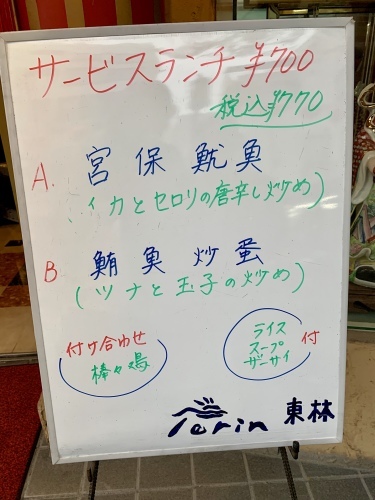 サービスランチ ¥700
税込¥770
A. 宮保魷魚
(イカとセロリの唐辛し炒め)
B 鮪魚炒蛋
(ツナと玉子の炒め)
付け合わせ
棒々鶏
ライス
スープ
ザーサイ
付
Terin 東林